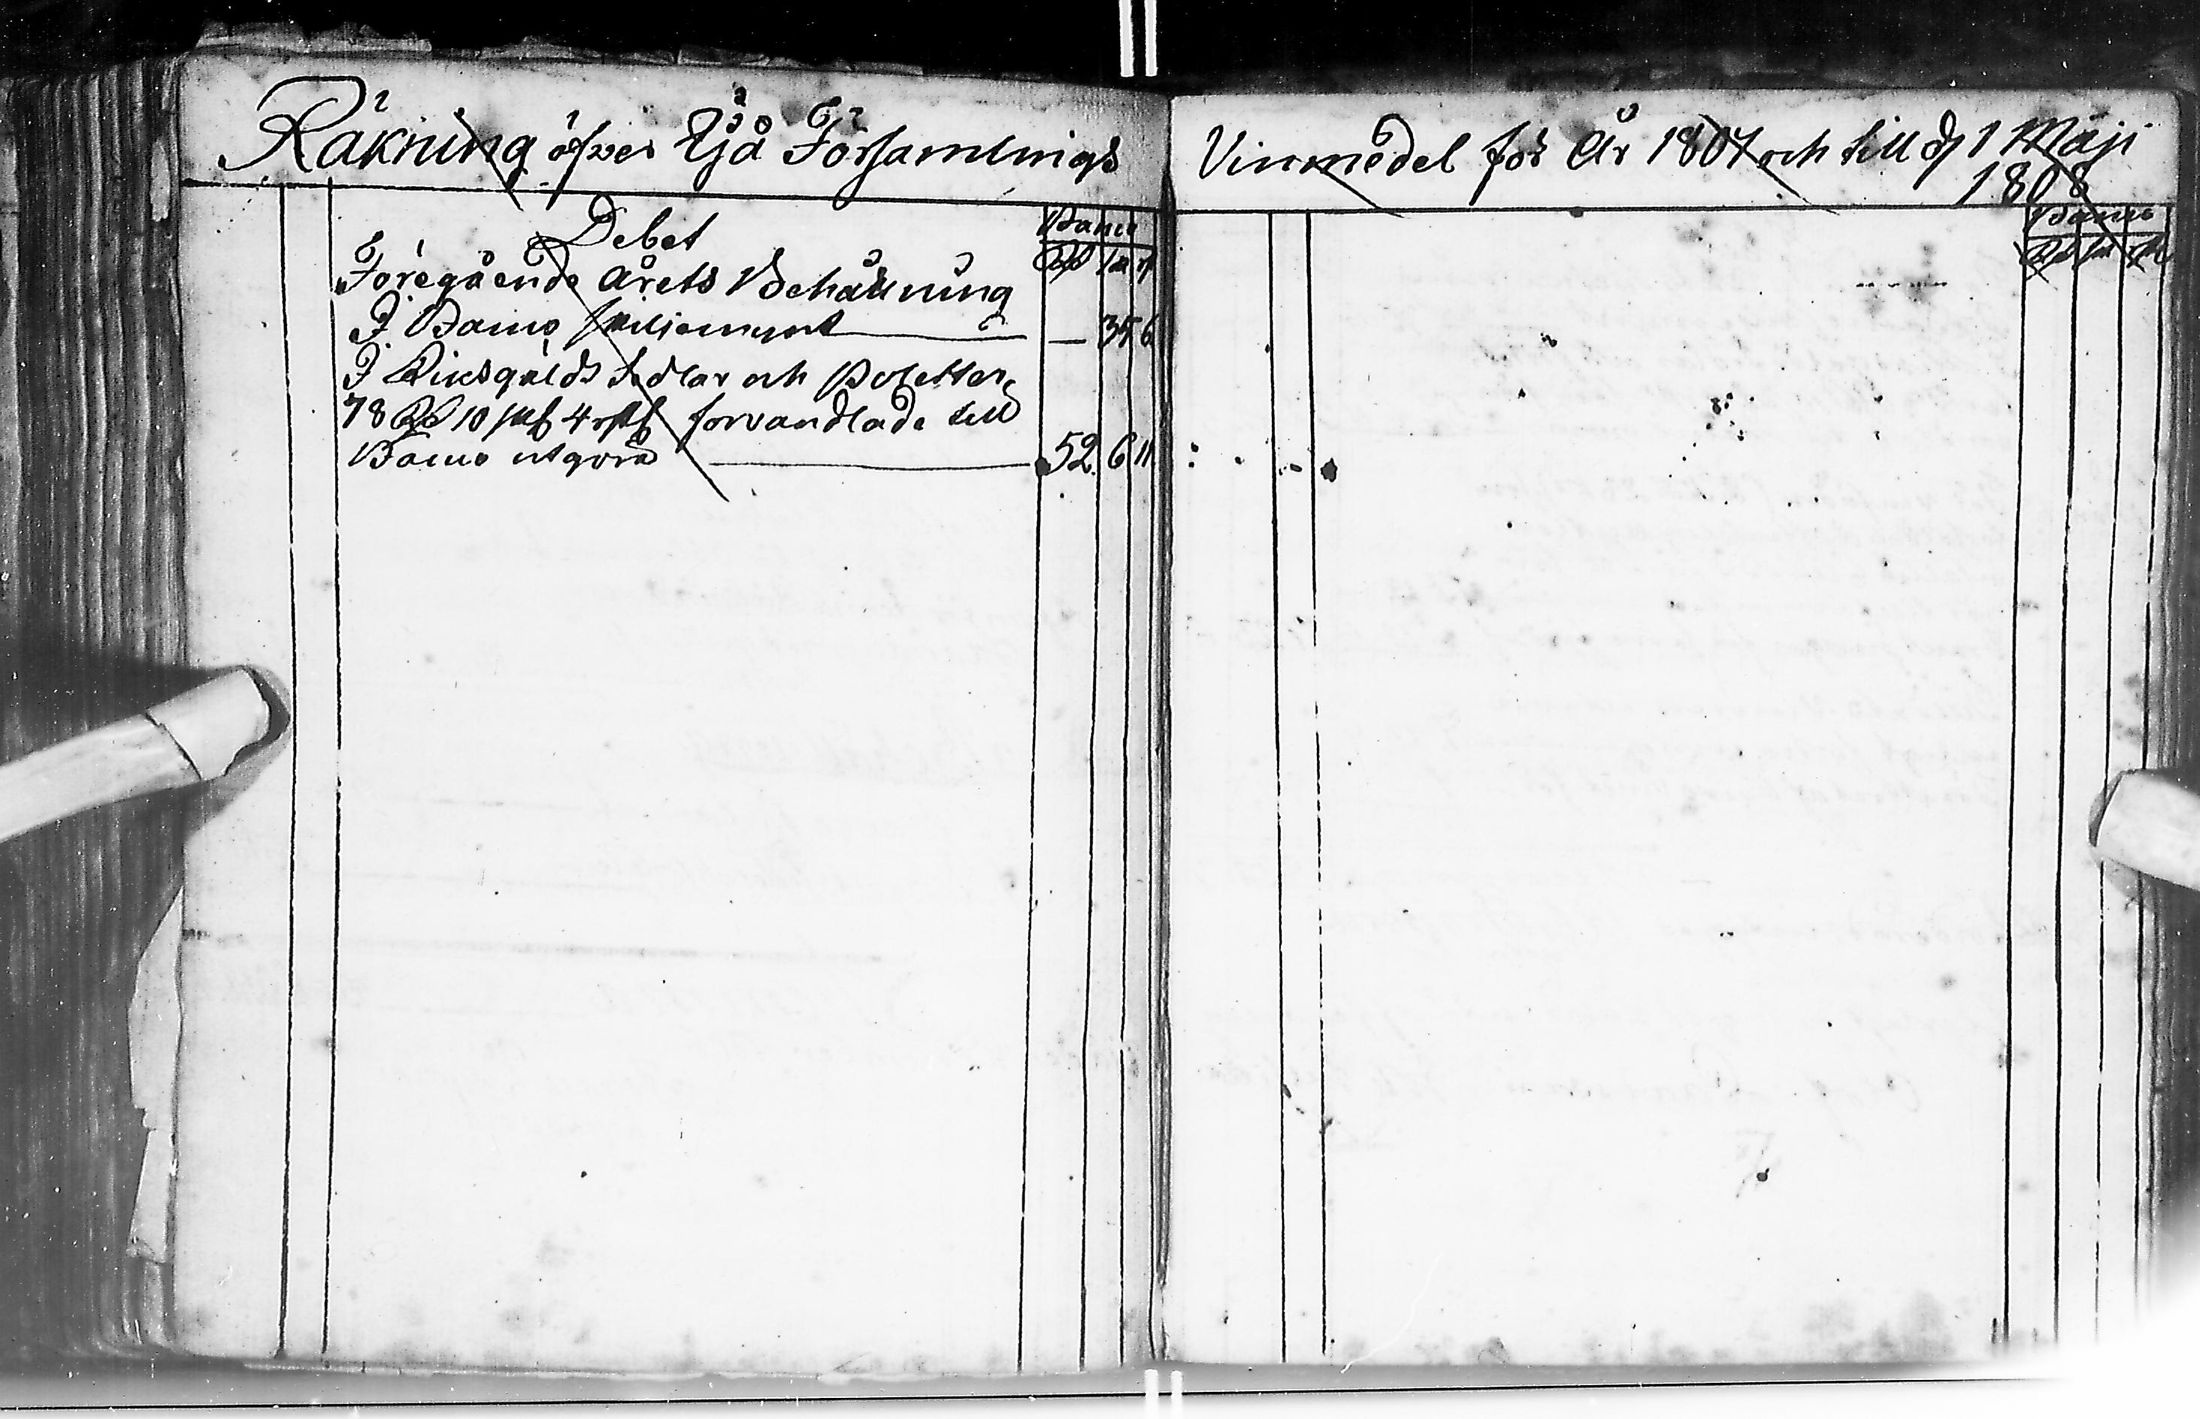 Räkning öfver Esjå Församlings
Debet
Banco
Rd sk r
Föregående Årets Behållning
I Banco skiljemynt — 35 6
I Riksgälds Sedlar och Poletter,
78 Rd 10 sk 4 rst förvandlade till
Banco utgöra 52. 6 11.
Vinmedel för År 1807 och till d 1 Maji
1808
Banco
Rd sk r